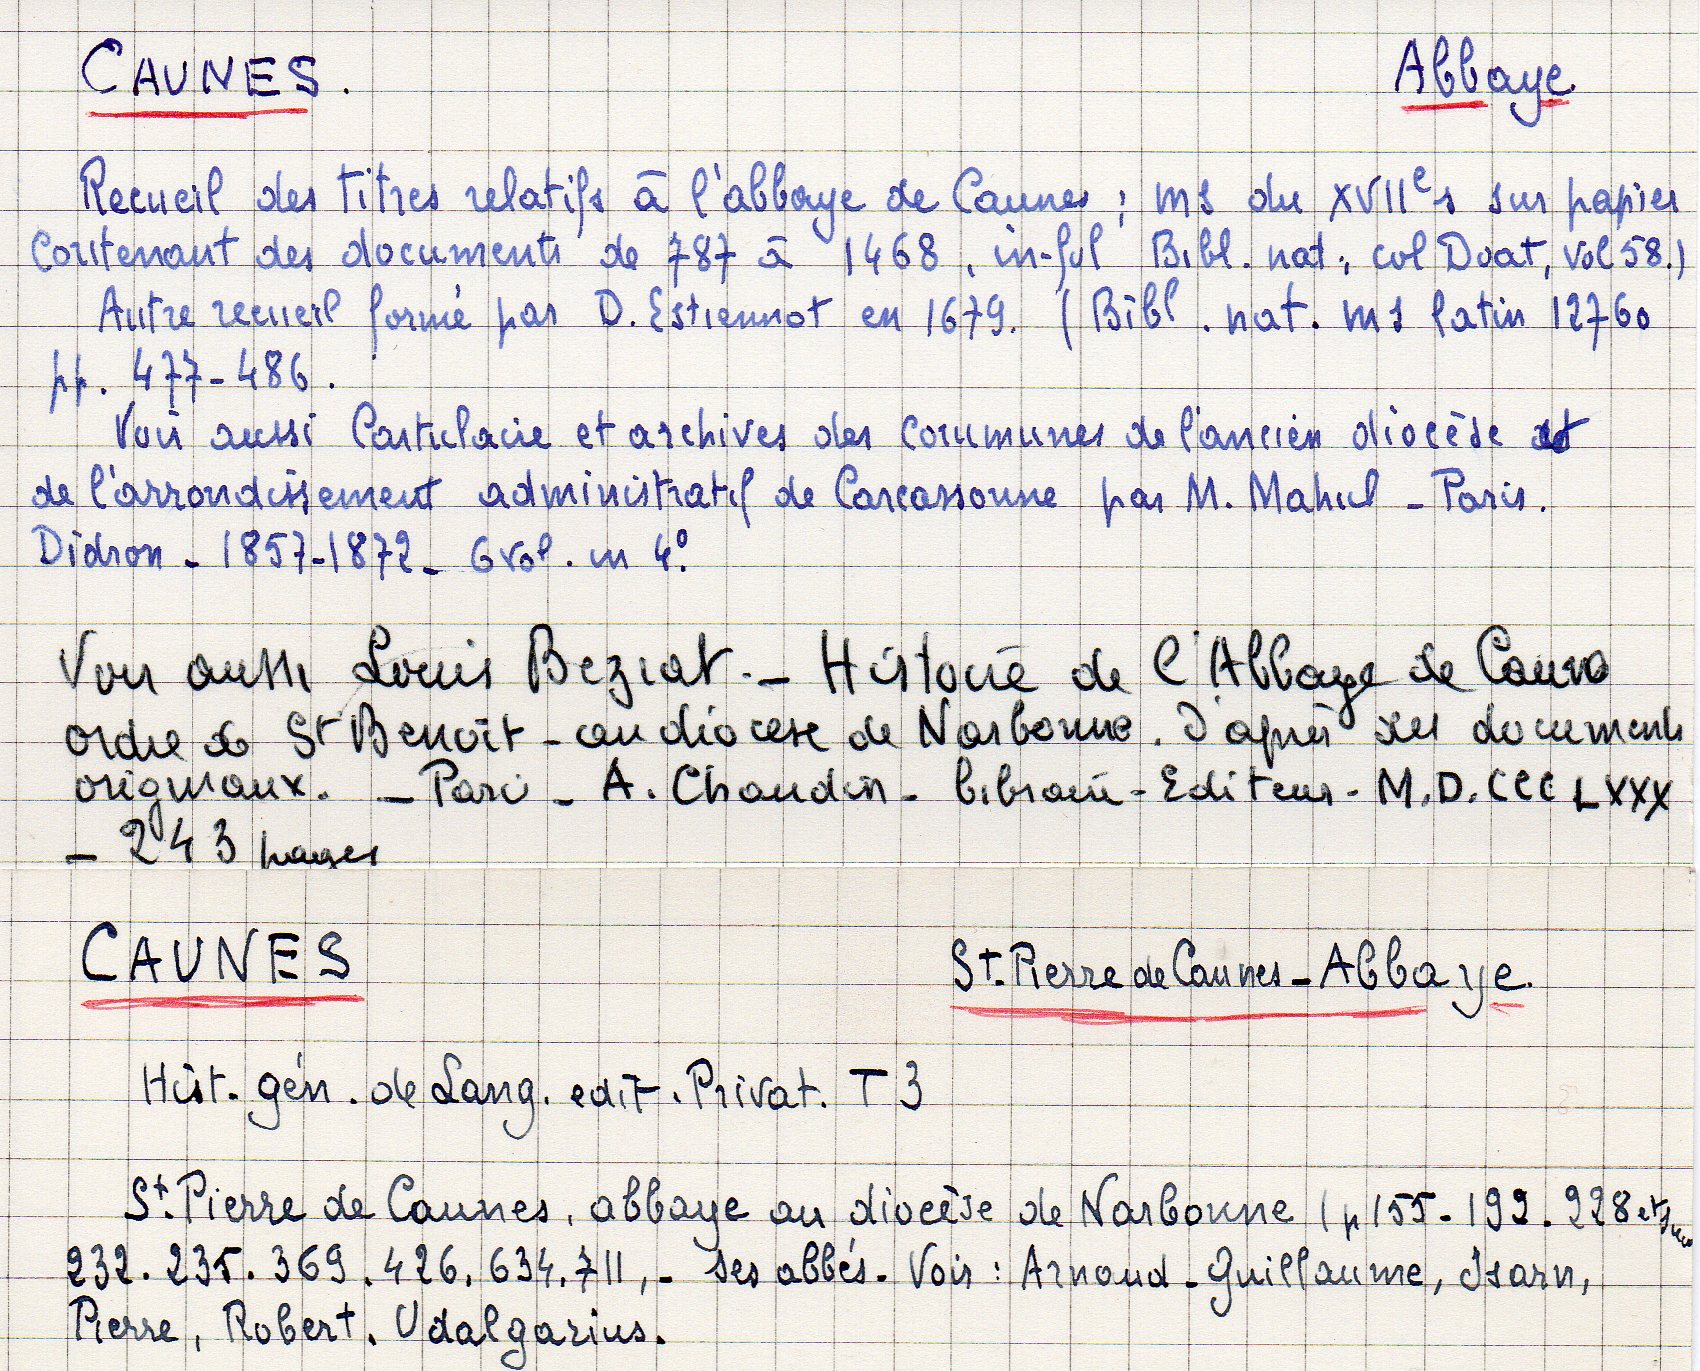 CAUNES. Abbaye.
Recueil des titres relatifs à l'abbaye de Caunes ; ms du XVIIe s sur papier
contenant des documents de 787 à 1468, in-fol Bibl. nat, col Doat, vol 58.)
Autre recueil formé par D. Estiennot en 1679. (Bibl. nat. ms latin 12760
pp. 477-486.
Voir aussi Cartulaire et archives des communes de l'ancien diocèse et
de l'arrondissement administratif de Carcassonne par M. Mahul - Paris.
Didron - 1857-1872 - 6 vol. in 4°.
Voir aussi Louis Beziat. - Histoire de l'Abbaye de Caunes
ordre de St Benoît - au diocèse de Narbonne. D'après des documents
originaux. - Paris - A. Chaudin - libraire - Editeur - M.D.CCCLXXX
- 243 pages
CAUNES St. Pierre de Caunes - Abbaye.
Hist. gén. de Lang. edit. Privat. T 3
St. Pierre de Caunes, abbaye au diocèse de Narbonne (p 155. 192. 228 et
232. 235. 369. 426. 634. 711, - ses abbés. Voir : Arnaud - Guillaume, Isarn,
Pierre, Robert. Udalgarius.